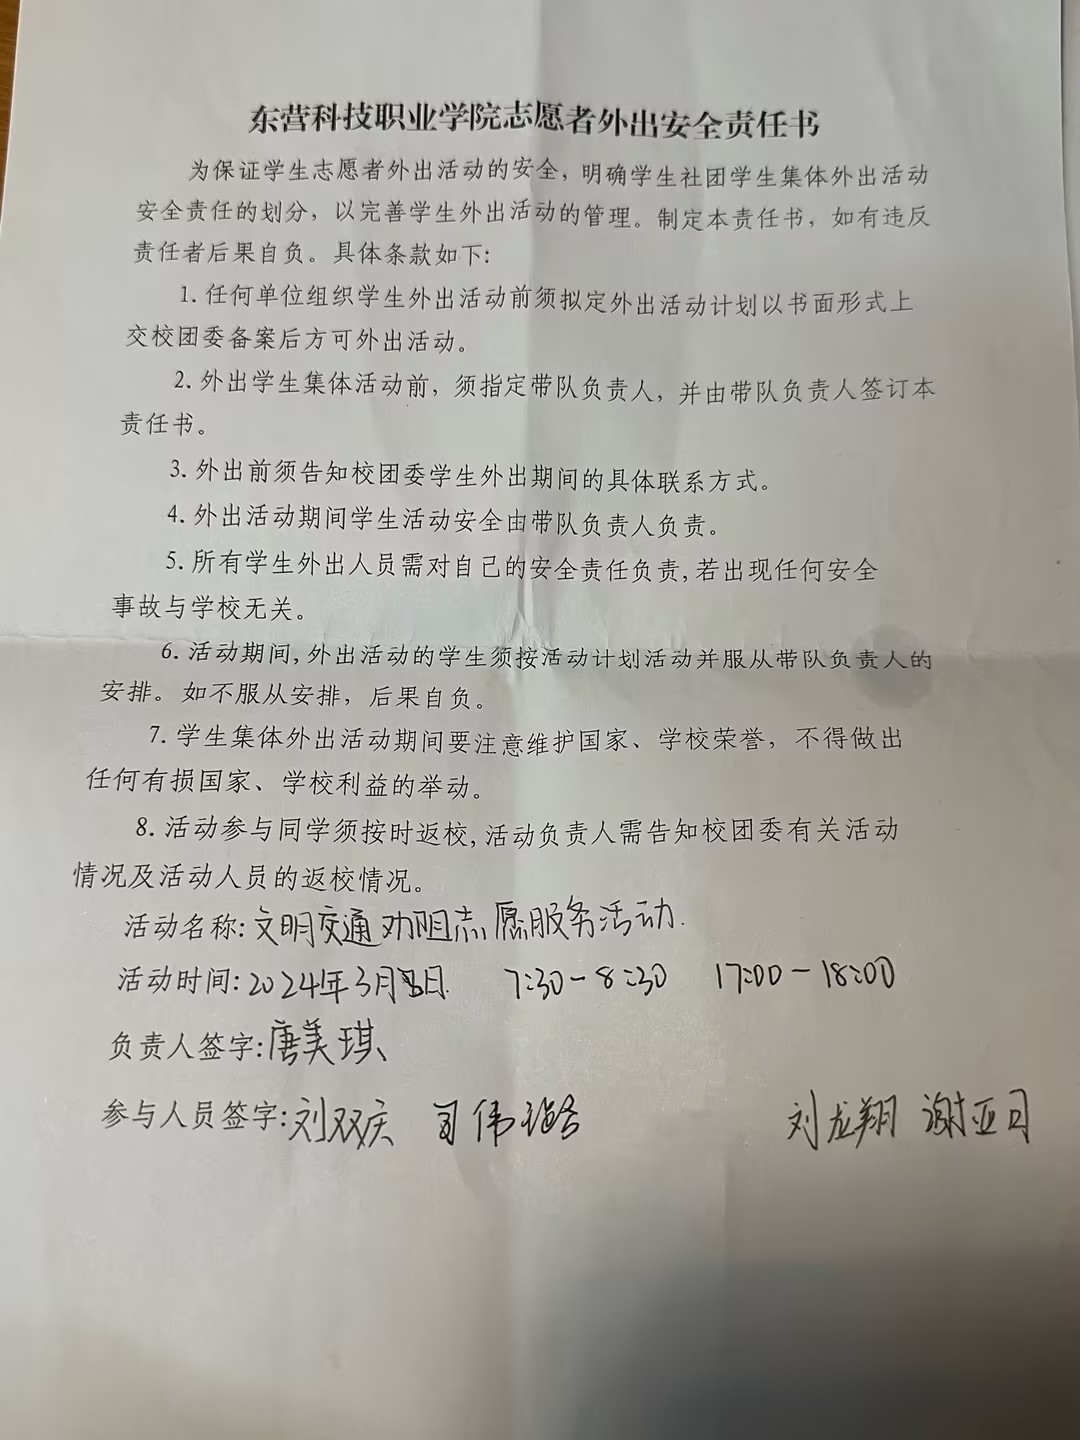 东营科技职业学院志愿者外出安全责任书
为保证学生志愿者外出活动的安全，明确学生社团学生集体外出活动
安全责任的划分，以完善学生外出活动的管理。制定本责任书，如有违反
责任者后果自负。具体条款如下：
1. 任何单位组织学生外出活动前须拟定外出活动计划以书面形式上
交校团委备案后方可外出活动。
2. 外出学生集体活动前，须指定带队负责人，并由带队负责人签订本
责任书。
3. 外出前须告知校团委学生外出期间的具体联系方式。
4. 外出活动期间学生活动安全由带队负责人负责。
5. 所有学生外出人员需对自己的安全责任负责,若出现任何安全
事故与学校无关。
6. 活动期间,外出活动的学生须按活动计划活动并服从带队负责人的
安排。如不服从安排，后果自负。
7. 学生集体外出活动期间要注意维护国家、学校荣誉，不得做出
任何有损国家、学校利益的举动。
8. 活动参与同学须按时返校,活动负责人需告知校团委有关活动
情况及活动人员的返校情况。
活动名称:文明交通劝阻志愿服务活动.
活动时间:2024年3月8日. 7:30-8:30 17:00-18:00
负责人签字:唐美琪
参与人员签字:刘双庆 伟 刘龙翔 谢亚